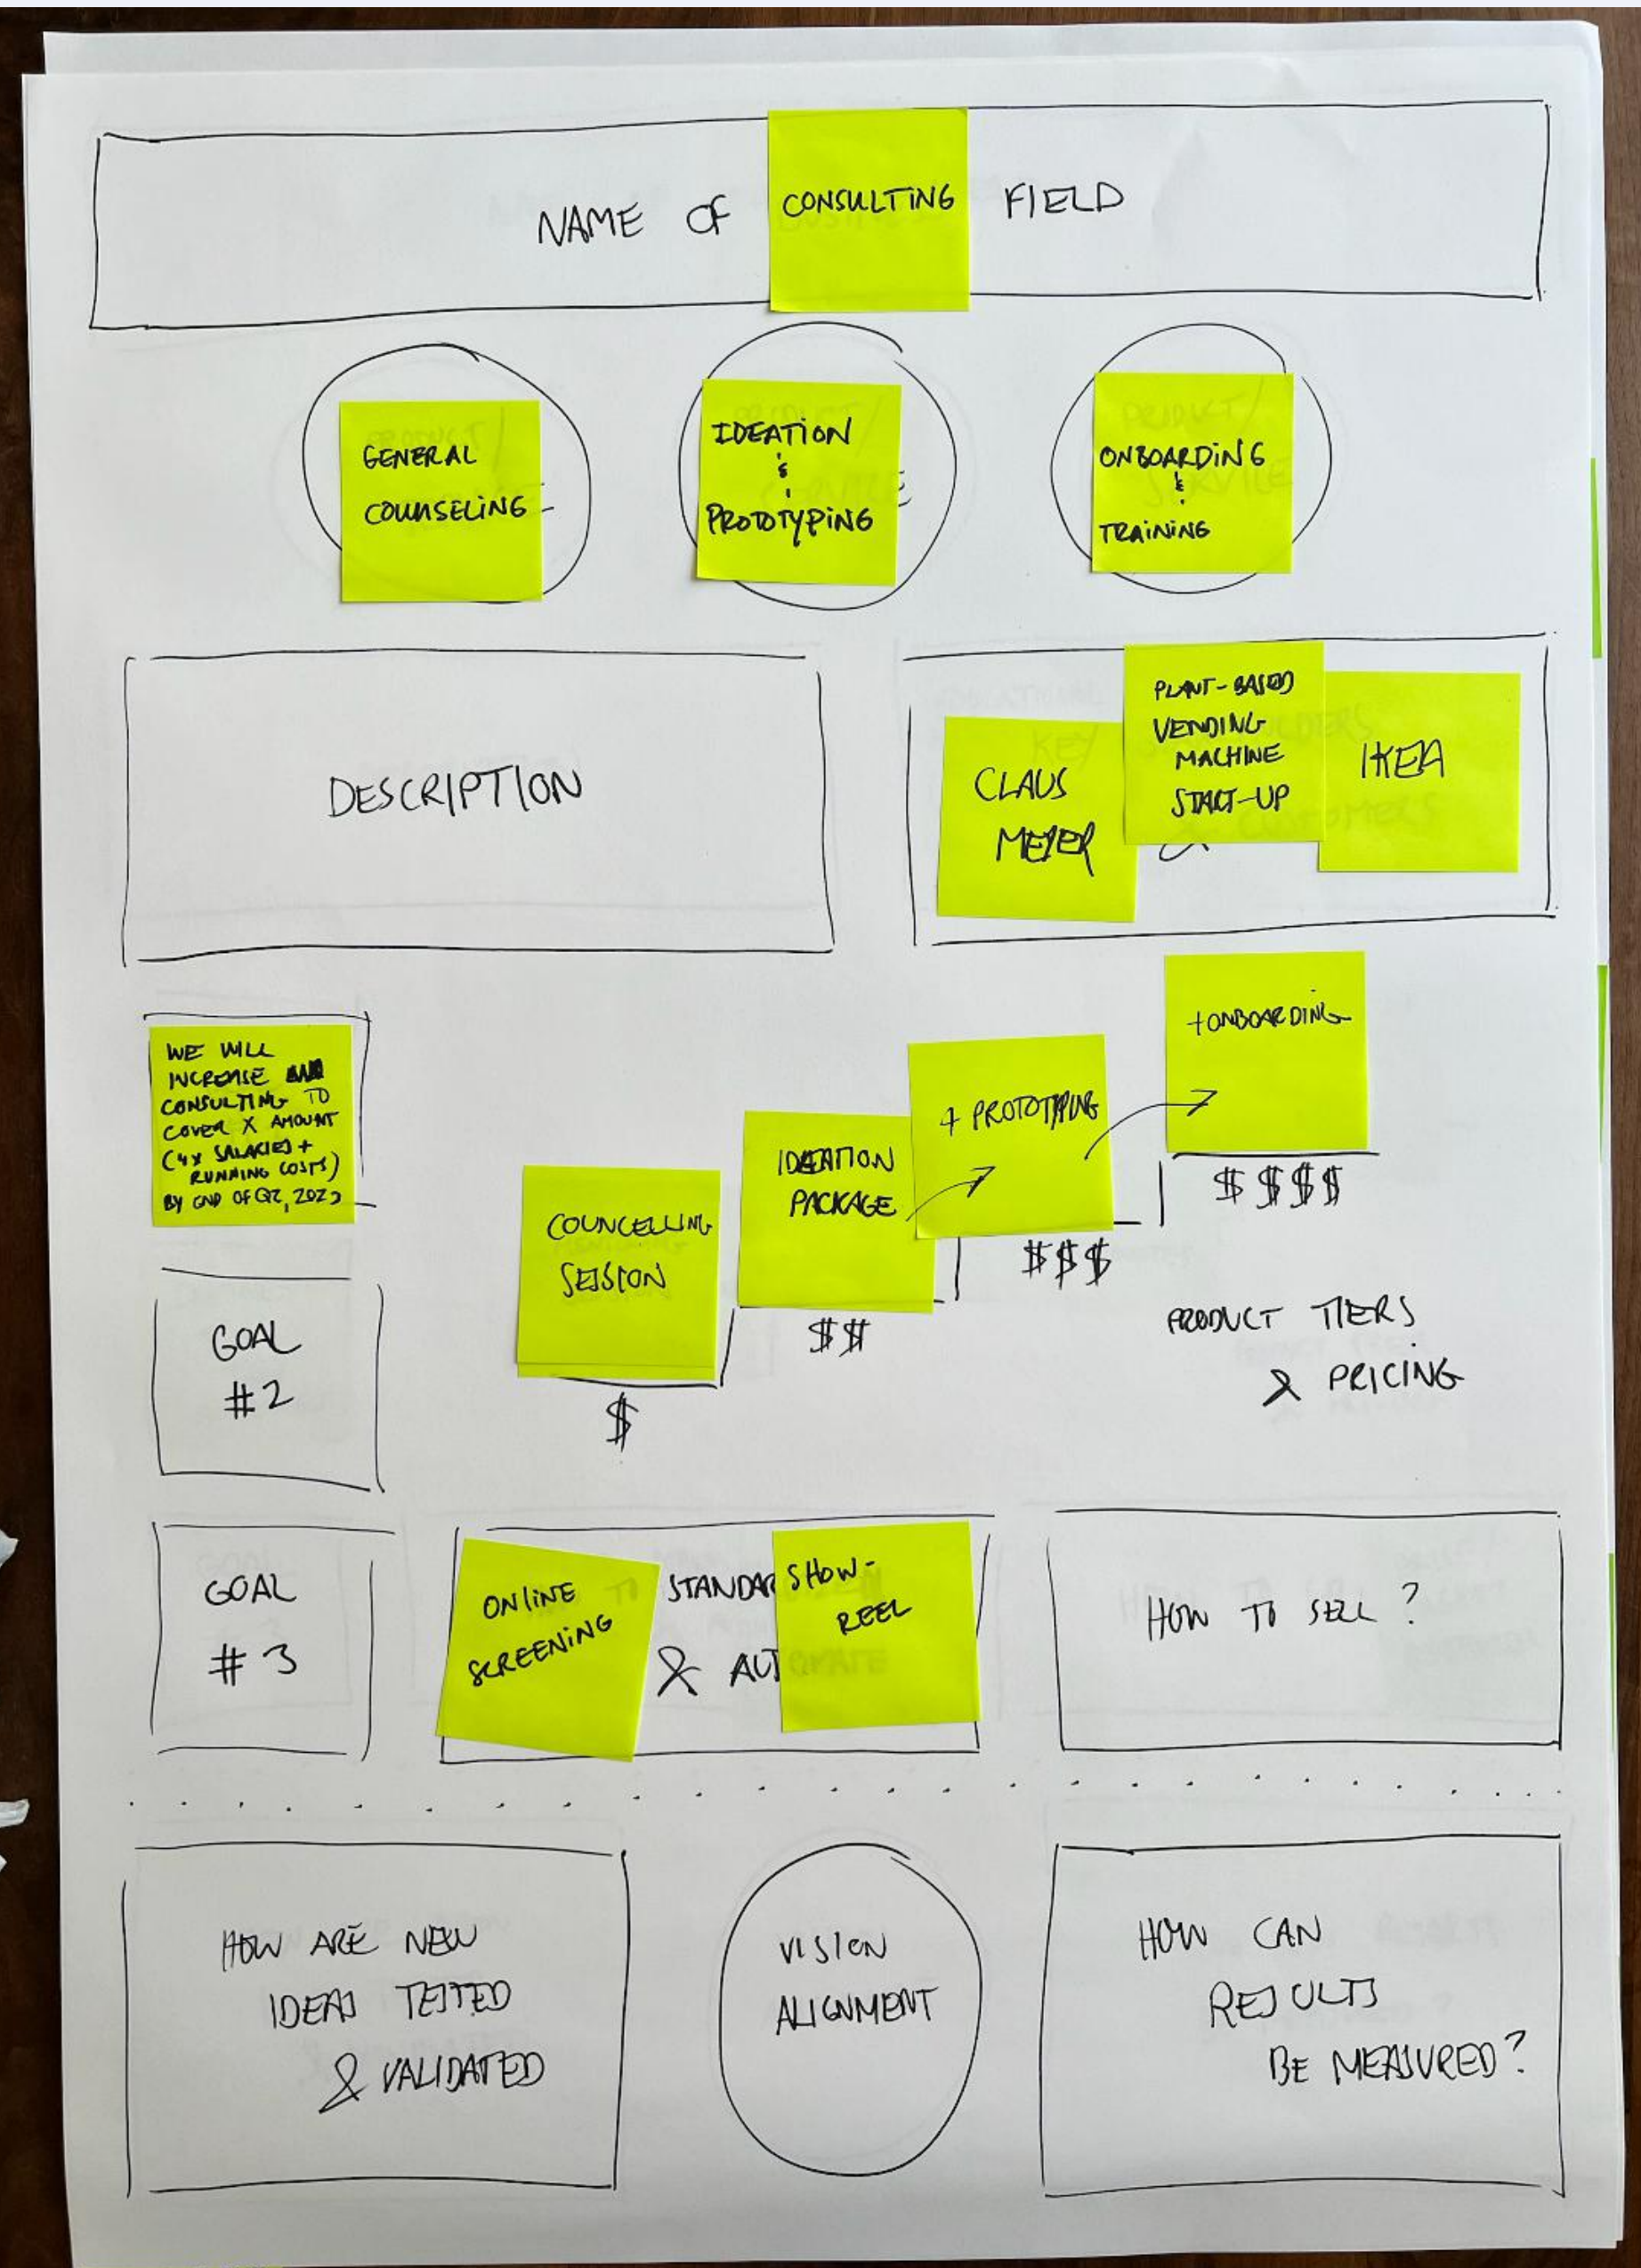 NAME OF CONSULTING FIELD
GENERAL
COUNSELING
IDEATION
&
PROTOTYPING
ONBOARDING
&
TRAINING
DESCRIPTION
CLAUS
MEYER
PLANT-BASED
VENDING
MACHINE
START-UP
IKEA
& CUSTOMERS
WE WILL
INCREASE
CONSULTING TO
COVER X AMOUNT
(4X SALARIES +
RUNNING COSTS)
BY END OF Q2, 2023
COUNCELLING
SESSION
$
IDEATION
PACKAGE
$$
+ PROTOTYPING
$$$
+ ONBOARDING
$$$$
PRODUCT TIERS
& PRICING
GOAL
#2
GOAL
#3
ONLINE
SCREENING
STANDAR
& AUTOMATE
SHOW-
REEL
HOW TO SELL?
HOW ARE NEW
IDEAS TESTED
& VALIDATED
VISION
ALIGNMENT
HOW CAN
RESULTS
BE MEASURED?